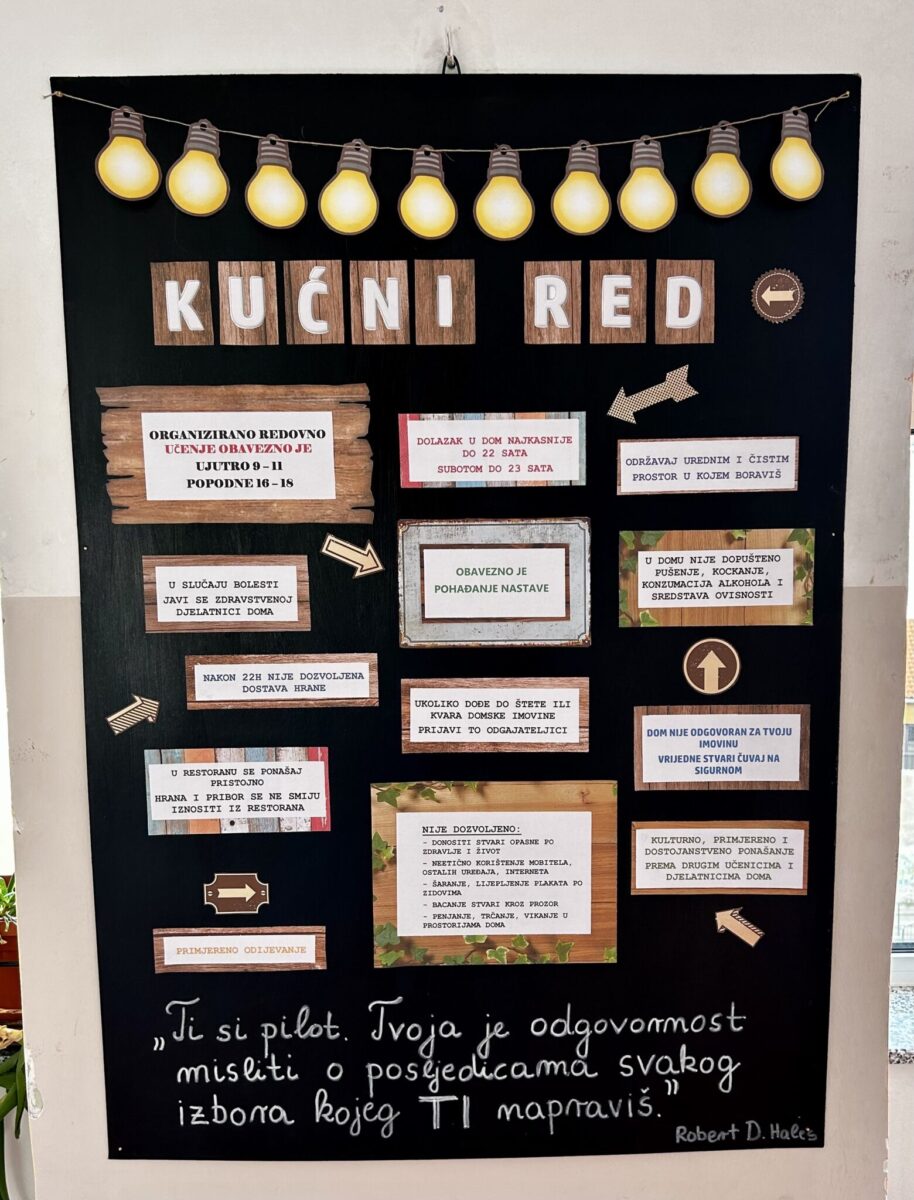 KUĆNI RED
ORGANIZIRANO REDOVNO
UČENJE OBAVEZNO JE
UJUTRO 9 – 11
POPODNE 16 – 18
DOLAZAK U DOM NAJKASNIJE
DO 22 SATA
SUBOTOM DO 23 SATA
ODRŽAVAJ UREDNIM I ČISTIM
PROSTOR U KOJEM BORAVIŠ
U SLUČAJU BOLESTI
JAVI SE ZDRAVSTVENOJ
DJELATNICI DOMA
OBAVEZNO JE
POHAĐANJE NASTAVE
U DOMU NIJE DOPUŠTENO
PUŠENJE, KOCKANJE,
KONZUMACIJA ALKOHOLA I
SREDSTAVA OVISNOSTI
NAKON 22H NIJE DOZVOLJENA
DOSTAVA HRANE
UKOLIKO DOĐE DO ŠTETE ILI
KVARA DOMSKE IMOVINE
PRIJAVI TO ODGAJATELJICI
DOM NIJE ODGOVORAN ZA TVOJU
IMOVINU
VRIJEDNE STVARI ČUVAJ NA
SIGURNOM
U RESTORANU SE PONAŠAJ
PRISTOJNO
HRANA I PRIBOR SE NE SMIJU
IZNOSITI IZ RESTORANA
NIJE DOZVOLJENO:
- DONOSITI STVARI OPASNE PO
ZDRAVLJE I ŽIVOT
- NEETIČNO KORIŠTENJE MOBITELA,
OSTALIH UREĐAJA, INTERNETA
- ŠARANJE, LIJEPLJENJE PLAKATA PO
ZIDOVIMA
- BACANJE STVARI KROZ PROZOR
- PENJANJE, TRČANJE, VIKANJE U
PROSTORIJAMA DOMA
KULTURNO, PRIMJERENO I
DOSTOJANSTVENO PONAŠANJE
PREMA DRUGIM UČENICIMA I
DJELATNICIMA DOMA
PRIMJERENO ODIJEVANJE
„Ti si pilot. Tvoja je odgovornost
misliti o posljedicama svakog
izbora kojeg TI napraviš."
Robert D. Hales